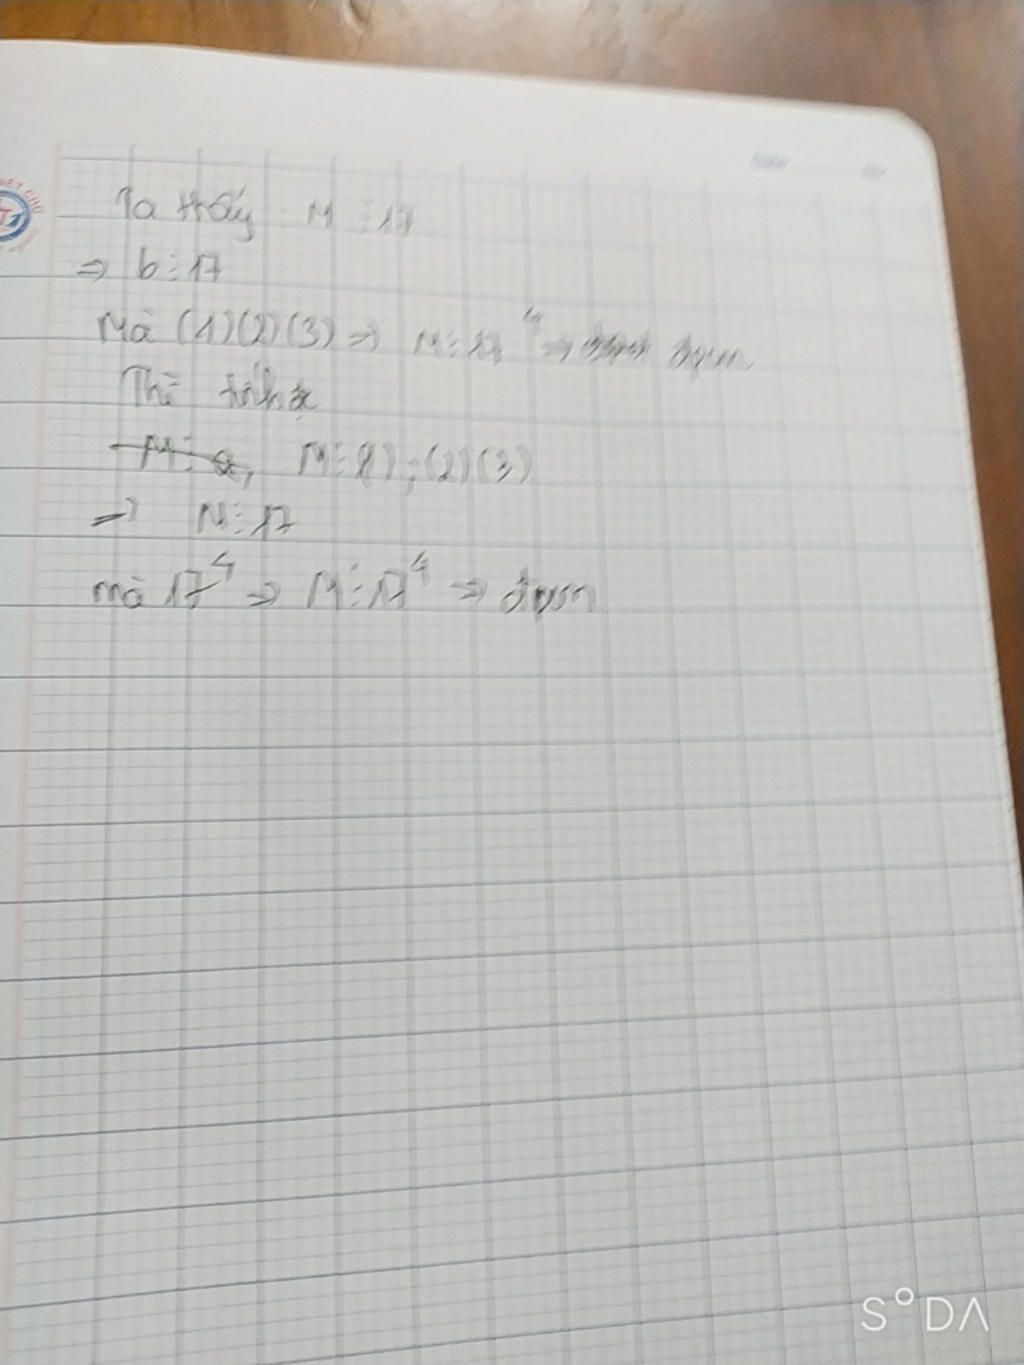 Ta thấy M ⋮ 17
⇒ b ⋮ 17
Mà (1)(2)(3) ⇒ M ⋮ 17⁴ ⇒ đpcm
Thì
M ⋮ a, M ⋮ (1); (2)(3)
⇒ M ⋮ 17
mà 17⁴ ⇒ M ⋮ 17⁴ ⇒ đpcm
S°DA